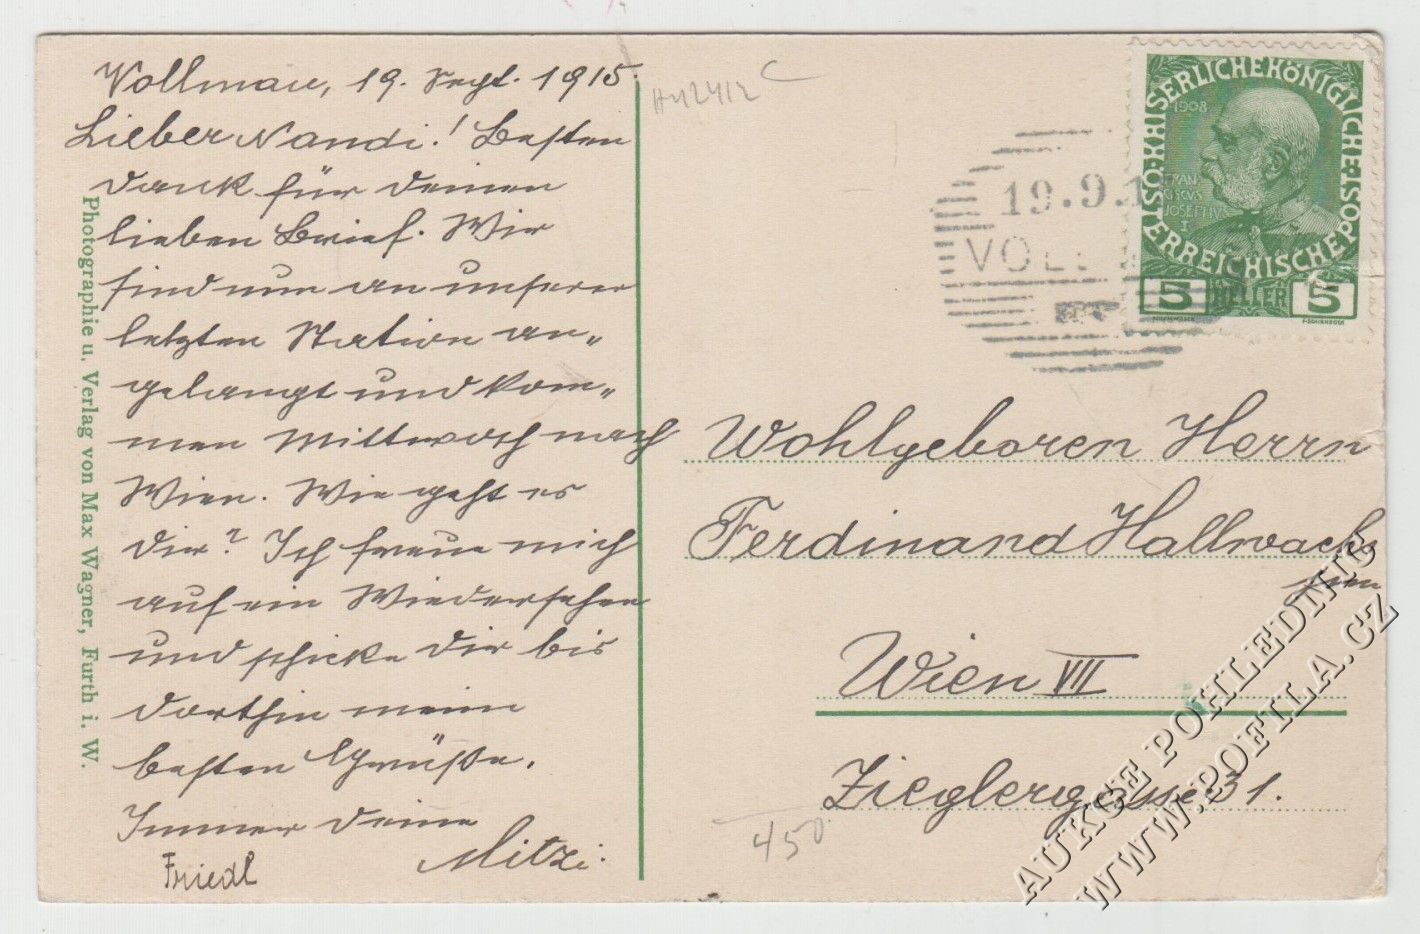 Vollmau, 19. Sept. 1915.
Lieber Nandi! Besten
Dank für Deinen
lieben Brief. Wir
sind nun an unserer
letzten Station an„
gelangt und kom„
men Mittwoch nach
Wien. Wie geht es
Dir? Ich freue mich
auf ein Wiedersehen
und schicke Dir bis
dorthin meine
besten Grüße.
Immer Deine
Mitzi.
Friedl
Photographie u. Verlag von Max Wagner, Furth i. W.
C
19.9.1
VOL
KAISERLICHE KÖNIGLICHE ÖSTERREICHISCHE POST
1908
FRAN
CISCVS
JOSEPHVS
I
5 HELLER 5
Wohlgeboren Herrn
Ferdinand Hallwachs
jun
Wien VII
Zieglergasse 31.
450
AUKCE POHLEDNIC
WWW.POFILA.CZ